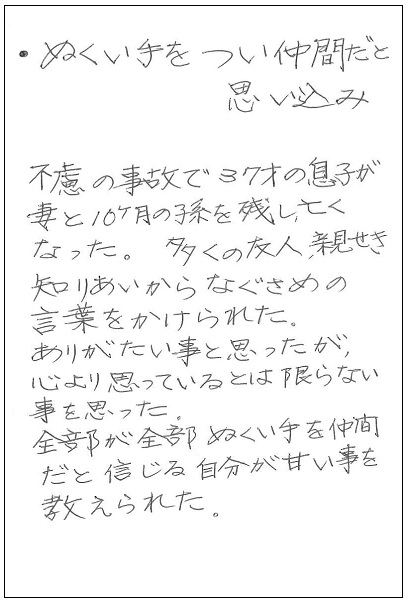 ・ぬくい手をつい仲間だと
思い込み
不慮の事故で37才の息子が
妻と10ヶ月の孫を残し亡く
なった。多くの友人、親せき
知りあいからなぐさめの
言葉をかけられた。
ありがたい事と思ったが、
心より思っているとは限らない
事を思った。
全部が全部ぬくい手を仲間
だと信じる自分が甘い事を
教えられた。